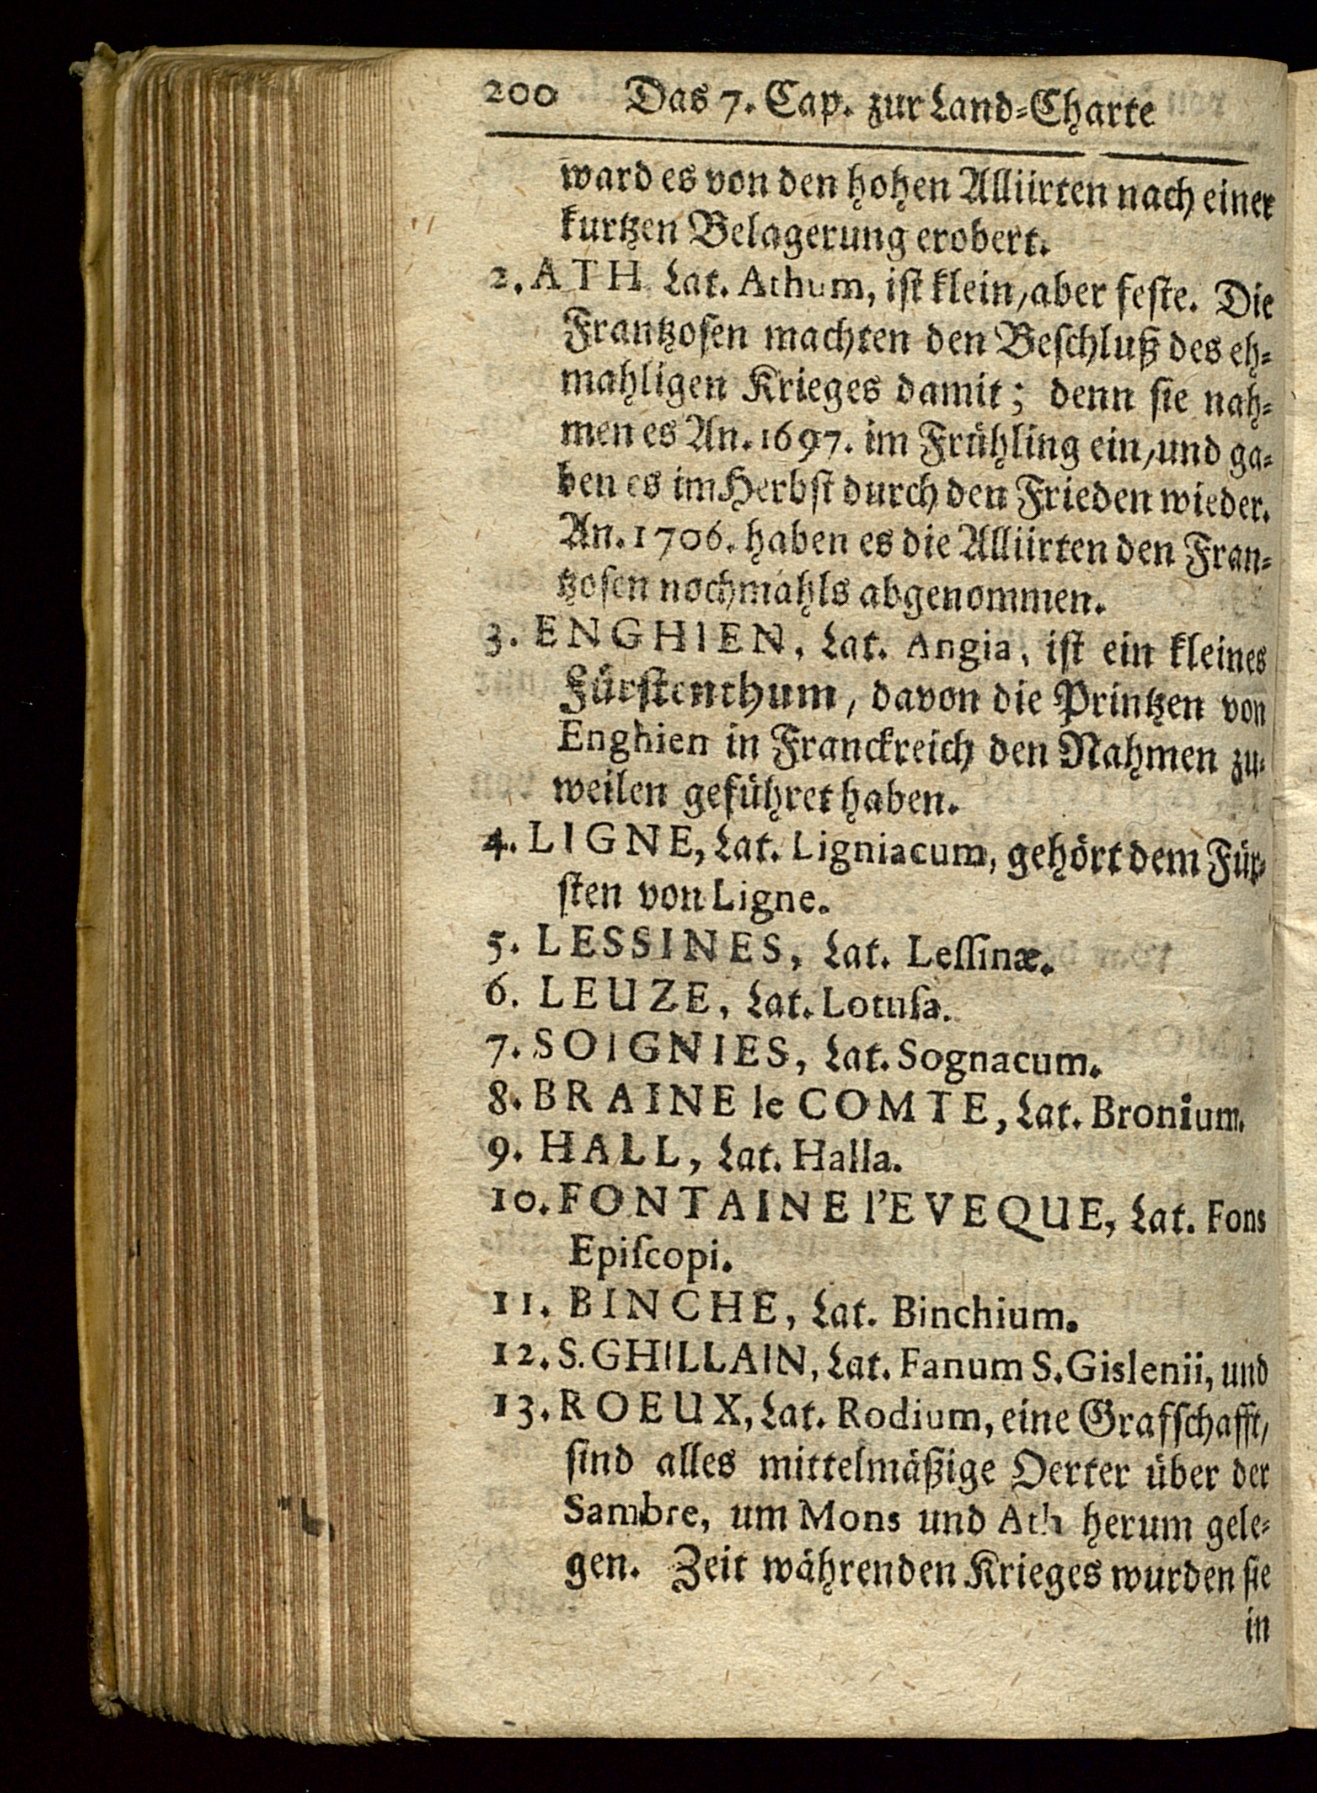 200 Das 7. Cap. zur Land-Charte
ward es von den hohen Alliirten nach einer
kurtzen Belagerung erobert.
2. ATH Lat. Athum, ist klein, aber feste. Die
Frantzosen machten den Beschluß des eh-
mahligen Krieges damit; denn sie nah-
men es An. 1697. im Frühling ein, und ga-
ben es im Herbst durch den Frieden wieder.
An. 1706. haben es die Alliirten den Fran-
tzosen nochmahls abgenommen.
3. ENGHIEN, Lat. Angia, ist ein kleines
Fürstenthum, davon die Printzen von
Enghien in Franckreich den Nahmen zu-
weilen geführet haben.
4. LIGNE, Lat. Ligniacum, gehört dem Für-
sten von Ligne.
5. LESSINES, Lat. Lessinæ.
6. LEUZE, Lat. Lotusa.
7. SOIGNIES, Lat. Sognacum.
8. BRAINE le COMTE, Lat. Bronium.
9. HALL, Lat. Halla.
10. FONTAINE l'EVEQUE, Lat. Fons
Episcopi.
11. BINCHE, Lat. Binchium.
12. S. GHILLAIN, Lat. Fanum S. Gislenii, und
13. ROEUX, Lat. Rodium, eine Grafschafft,
sind alles mittelmäßige Oerter über der
Sambre, um Mons und Ath herum gele-
gen. Zeit währenden Krieges wurden sie
in